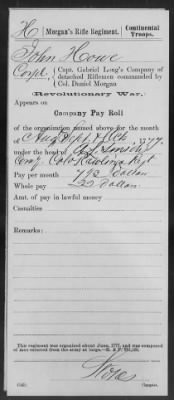 H Morgan's Rifle Regiment. Continental Troops.
John Howe
Corpl. Capt. Gabriel Long's Company of detached Riflemen commanded by Col. Daniel Morgan
(Revolutionary War.)
Appears on
Company Pay Roll
of the organization named above for the month
of Aug Sept & Oct 1777.
under the head of
Pay per month 7 1/3 dollars
Whole pay 22 dollars
Amt. of pay in lawful money
Casualties
Remarks:
This regiment was organized about June, 1777, and was composed
of men selected from the army at large.
Copyist.